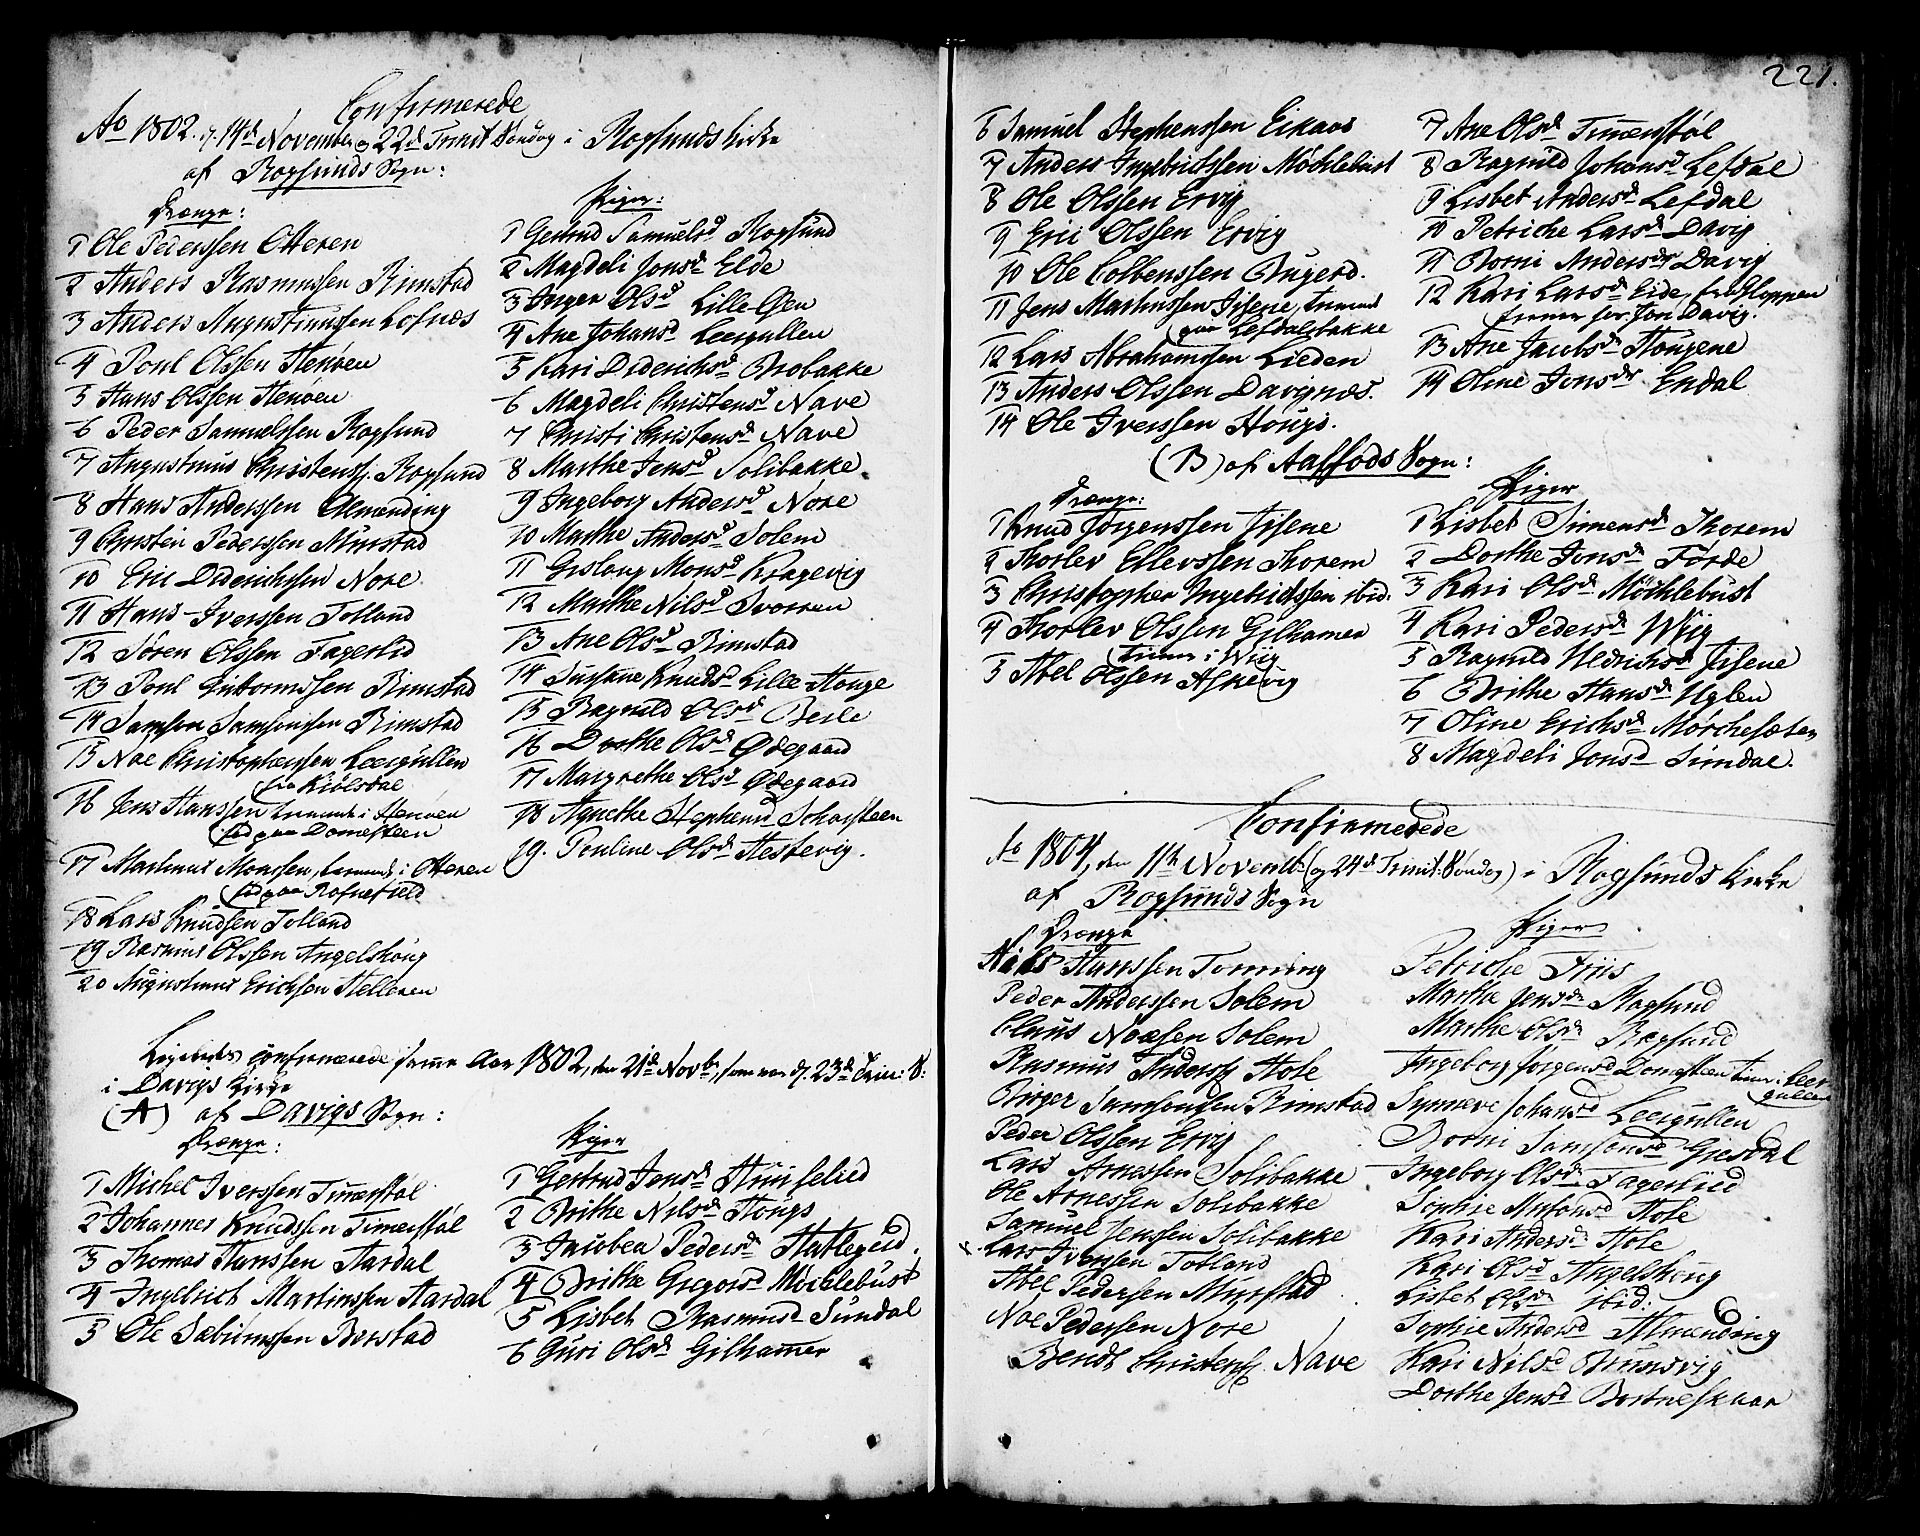 Confirmerede
Ao 1802. d. 14d November og 22d Trinit Søndag i Rogsunds kirke
af Rogsunds Sogn:
Drænge:
1 Ole Pederssen Otteren
2 Anders Rasmussen Rimstad
3 Anders Augustinussen Lofnæs
4 Poul Olssen Henøen
5 Hans Olssen Henøen
6 Peder Samuelssen Rogsund
7 Augustinus Christenss. Rogsund
8 Hans Anderssen Almending
9 Christen Pederssen Mürstad
10 Eric Diderichssen Nore
11 Hans Iverssen Totland
12 Søren Olssen Fagerlid
13 Poul Guttormssen Rimstad
14 Samson Samsonssen Rimstad
15 Noe Christophersen Leergullen
fra Kiølsdal
16 Jens Hanssen tienende i Henøen
fød paa Domesteen
17 Martinus Monssen, tienende i Otteren
fød paa Rofnefield
18 Lars Knudsen Totland
19 Rasmus Olssen Angelshoug
20 Augustinus Erichsen Helleren
Piger:
1 Gertrud Samuelsd Rogsund
2 Magdeli Jonsd Elde
3 Inger Olsd Lille-Øen
4 Ane Johansd Leergullen
5 Kari Diderichsd Brobakke
6 Magdeli Christensd Nave
7 Christi Christensd Nave
8 Marthe Jensd Solibakke
9 Ingeborg Andersd Nore
10 Marthe Andersd Solem
11 Gisloug Monsd Kragevig
12 Marthe Nilsd Svorren
13 Ane Olsd Rimstad
14 Susane Knudsd Lille-Houge
15 Ragnild Olsd Berle
16 Dorthe Olsd Ødegaard
17 Margrethe Olsd Ødegaard
18 Agnethe Stephensd Schorsteen
19. Pouline Olsd Hestevig.
Ligeledes confirmerede samme Aar 1802, den 21d Novbr, som var d. 23d Trin: S:
i Davigs Kirke
(A) af Davigs Sogn:
Drænge:
1 Michel Iverssen Timerstøl
2 Johannes Knudssen Timerstøl
3 Thomas Hanssen Aardal
4 Ingebrict Martinssen Aardal
5 Ole Sæbiørnssen Borstad
Piger
1 Gertrud Jensd Hünselied
2 Brithe Nilsd Hougs
3 Jacobea Pedersd Hatlegierd.
4 Brithe Gregorsd Möchlebust
5 Lisbet Rasmusd Sundal
6 Guri Olsd Gilhamer
221.
6 Samuel Stephenssen Eikaas
7 Anders Ingebrictssen Möchlebust
8 Ole Olssen Ervig
9 Eric Olssen Ervig
10 Ole Colbenssen Dugerd.
11 Jens Martinussen Isene, tienende
paa Lefdalsbakke
12 Lars Abrahamssen Lieden
13 Anders Olssen Davignes.
14 Ole Iverssen Hougs.
7 Ane Olsd Timerstøl
8 Ragnild Johansd Lefdal
9 Lisbet Andersd Lefdal
10 Petriche Larsd Davig
11 Borni Andersdr Davig
12 Kari Larsd Eide, fra Gloppen
tiener hos Jon Davig.
13 Ane Jacobsd Hougene
14 Oline Jonsdr Endal
(B) af Aalfods Sogn:
Drænge:
1 Knud Jørgenssen Isene
2 Thorlev Ellevssen Thorem
3 Christopher Ingebrictssen ibid.
4 Thorlev Olssen Gilhamer
tiener i Wiig
5 Abel Olssen Askevig
Piger
1 Lisbet Simensd Thorem
2 Dorthe Jonsd Förde
3 Kari Olsd Möchlebüst
4 Kari Pedersd Wiig
5 Ragnild Uldrichsd Isene
6 Brithe Hansd Uglen
7 Oline Erichsd Mörcheseter
8 Magdeli Jonsd Sundal.
Confirmerede
Ao 1804, den 11te Novembr (og 24d Trinit: Søndag) i Rogsunds kirke
af Rogsunds Sogn
Drænge
Nils Hanssen Torning
Peder Anderssen Solem
Claus Noessen Solem
Rasmus Anderss Hole
Birger Samsonssen Rimstad
Peder Olssen Ervig
Lars Arnessen Solibakke
Ole Arnessen Solibakke
Samuel Jenssen Solibakke
x. Lars Iverssen Totland
Abel Pedersen Myrestad
Noe Pedersen Nore
Bendt Christenss. Nave
Piger
Petriche Friis
Marthe Jensd Rogsund
Marthe Olsd Rogsund
Ingeborg Jørgensd Domesteen tien: i Leer
gullen
Synneve Johansd Leergullen
Borni Samsonsd Giesdal
Ingeborg Olsd Fagerlied
Sophie Monsd Hole
Kari Andersd Hole
Kari Olsd Angelshoug
Lisbet Olsd ibid:
Sophie Andersd Almending
Kari Nilsd Brunsvig
Dorthe Jensd Bortneskaar